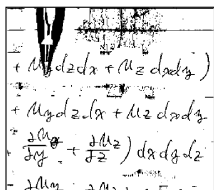 + u_y dzdx + u_z dxdy )
+ u_y dzdx + u_z dxdy
+ ∂u_y/∂y + ∂u_z/∂z ) dxdydz